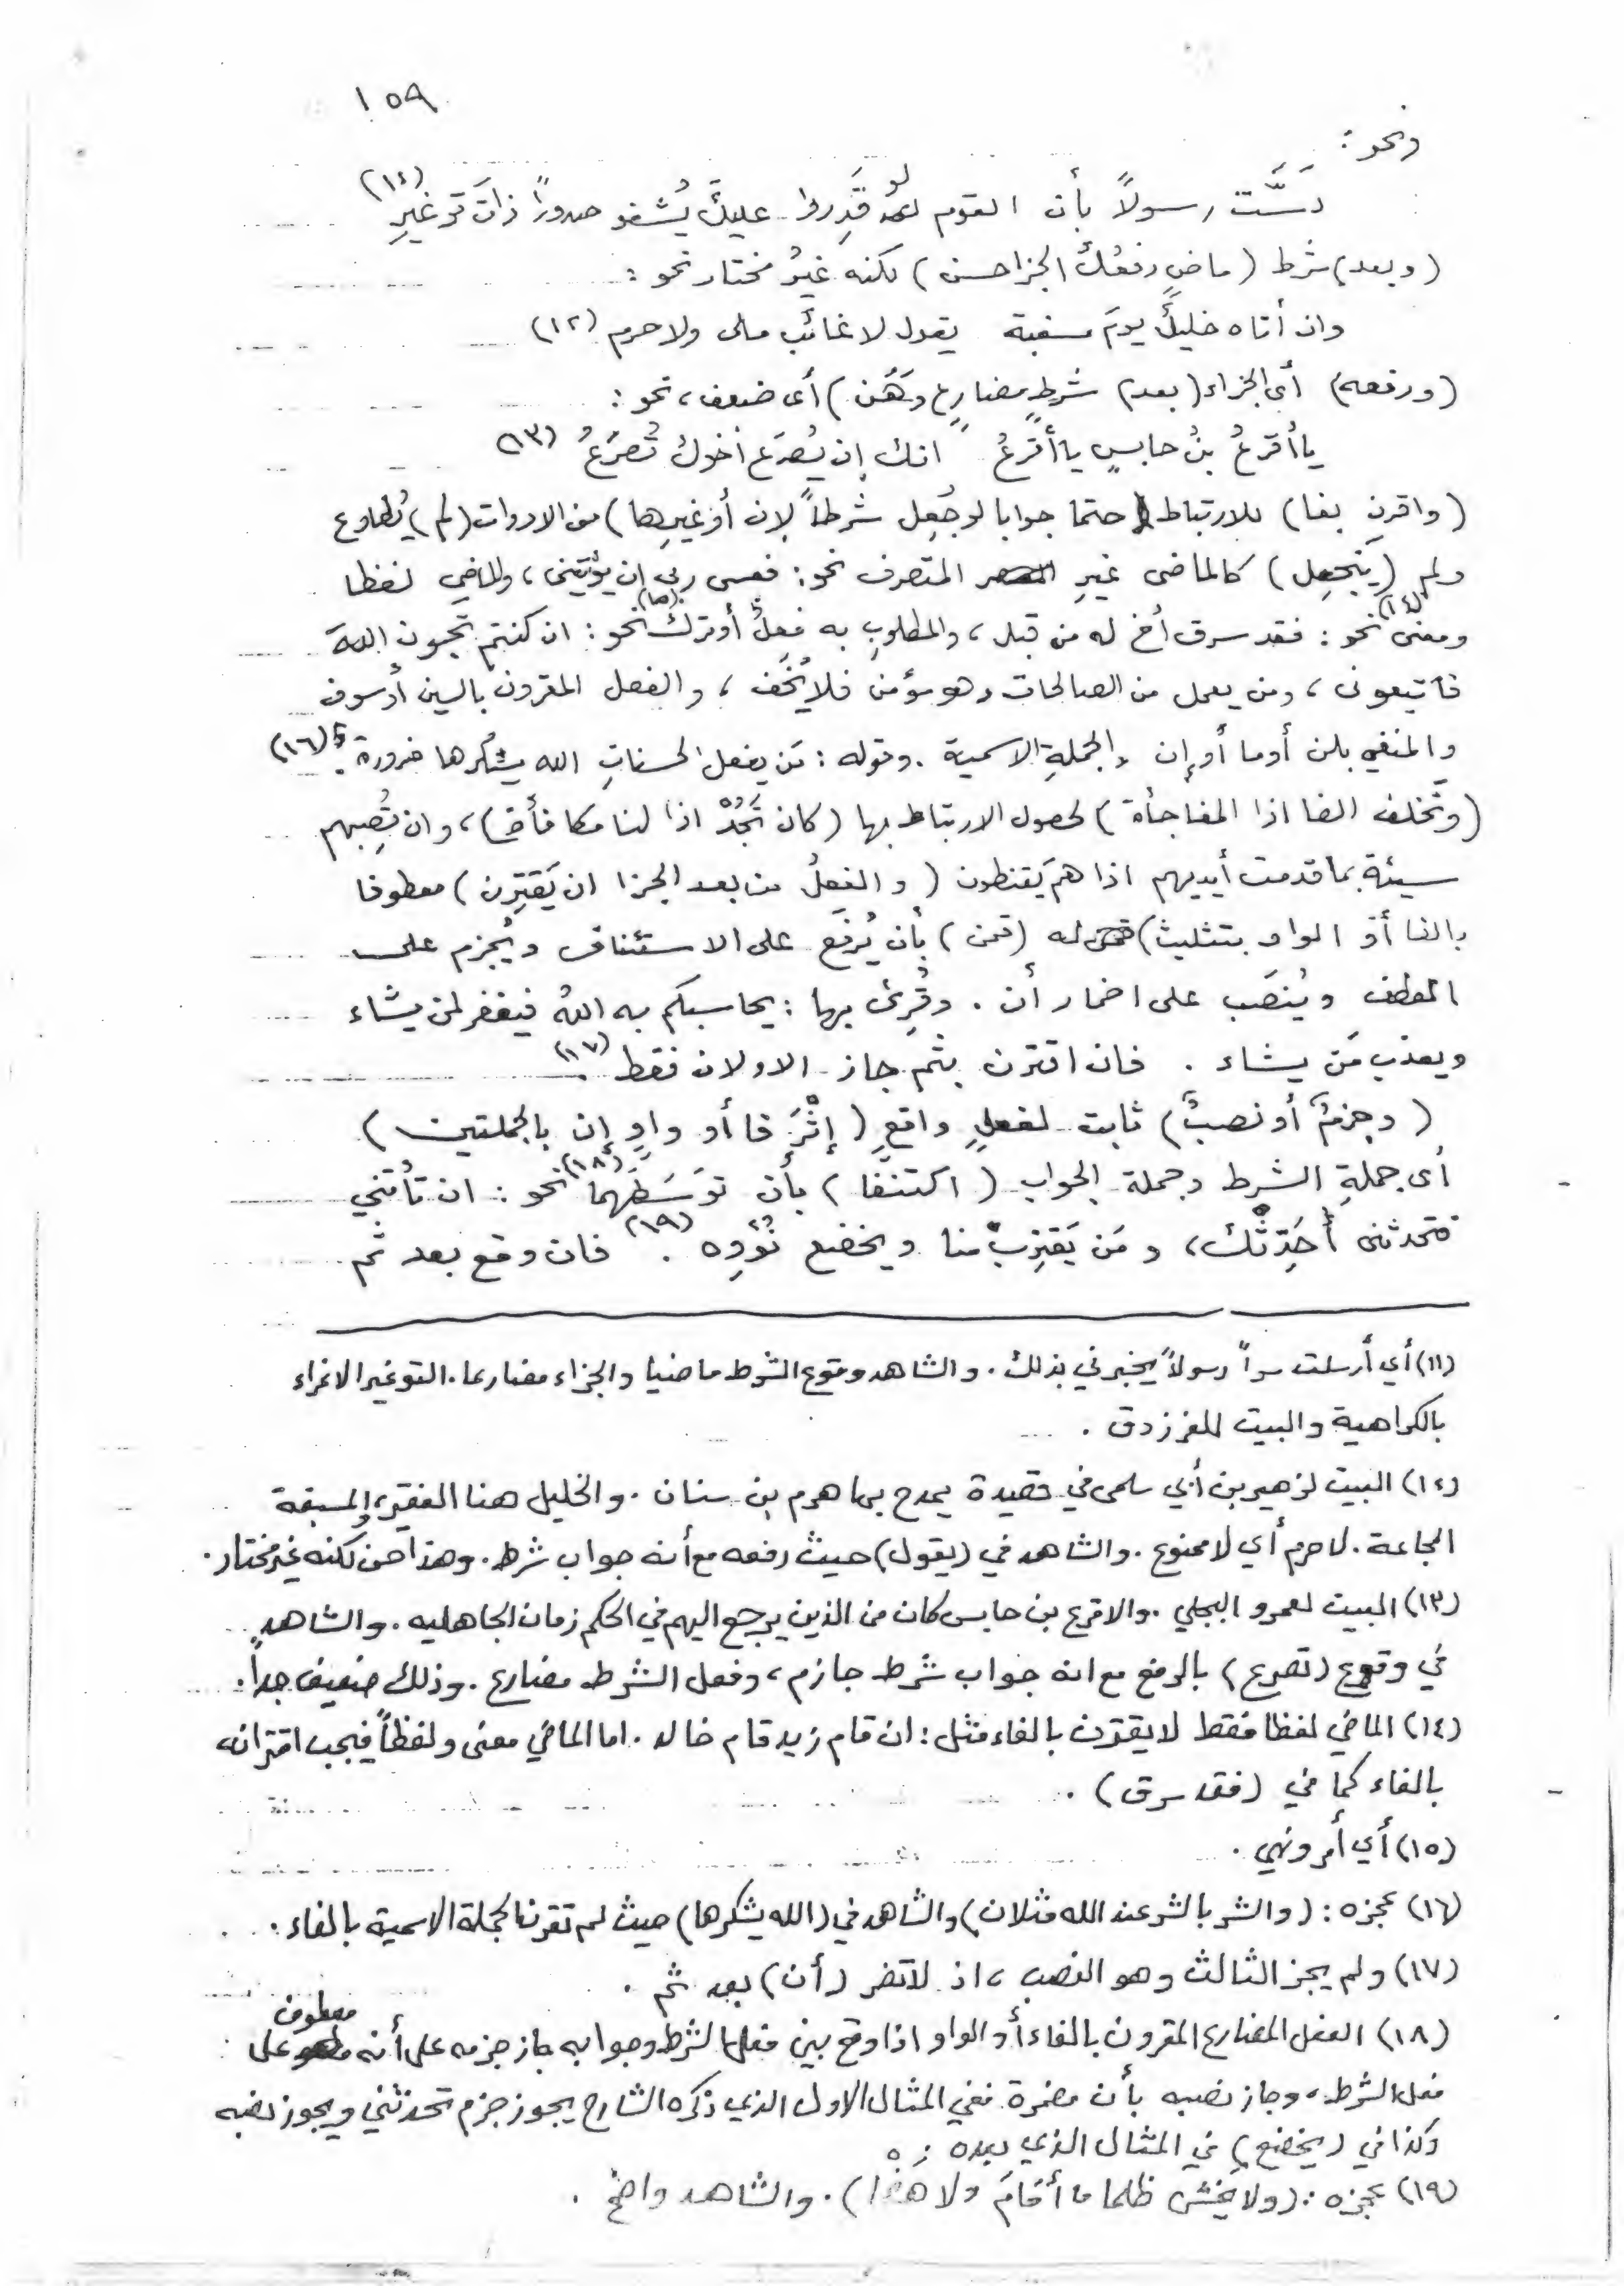 ١٥٩
ونحو :
دَسَّت رسولاً بأن القوم لو قَدِروا عليكَ يُشفو صدوراً ذاتَ توغيرِ (١١)
(وبعد) شرط (ماضٍ رفعُك الجزا حسن) لكنه غيرُ مختار نحو :
وان أتاه خليلٌ يومَ مسغبة يقول لا غائب مالى ولا حرم (١٢)
(ورفعه) أى الجزاء (بعد) شرطٍ (مضارعٍ وَهَن) أى ضعف، نحو :
يا أقرعُ بنُ حابسٍ يا أقرعُ انك إن يُصرَع أخوك تُصرَعُ (١٣)
(واقرن بفا) للارتباط (حتما جوابا لو جُعِل شرطاً لإن أو غيرِها) من الادوات (لم) يُطاوع
ولم (ينجعِل) كالماضى غيرِ المتصرف نحو : فعسى ربى إن يؤتينى، والماضي لفظا
ومعنى (١٤) نحو : فقد سرق أخ له من قبل، والمطلوبِ به فعلٌ أو ترك (١٥) نحو : ان كنتم تحبون اللهَ
فاتبعونى، ومن يعمل من الصالحات وهو مؤمن فلا يُخَف، والفعل المقرون بالسين أو سوف
والمنفي بلن أو ما أو إن والجملةِ الاسمية . وقوله : مَن يفعل الحسناتِ الله يشكرها ضرورة . (١٦)
(وتَخلف الفا اذا المفاجأة) لحصول الارتباط بها (كان تَجُدْ اذا لنا مكافأة)، وان تُصِبهم
سيئة بما قدمت أيديهم اذا هم يَقنطون (والفعلُ من بعد الجزا ان يَقترِن) معطوفا
بالفا أو الواو بتثليث) له (قمن) بأن يُرفَع على الاستئناف ويُجزم على
العطف ويُنصَب على اضمار أن . وقُرِئ بها : يحاسبكم به اللهُ فيغفر لمن يشاء
ويعذب مَن يشاء . فان اقترن بثم جاز الاولان فقط . (١٧)
(وجزمٌ أو نصبٌ) ثابت لفعلٍ واقعٍ (إثْرَ فا أو واوٍ إن بالجملتين)
أى جملةِ الشرط وجملة الجواب (اكتنفا) بأن توَسَطَهما (١٨) نحو : ان تأتني
فتحدثنى أُحَدِّثْك، ومَن يَقترِبْ منا ويخضع نُؤوِه (١٩) . فان وقع بعد ثم
(١١) أي أرسلت سراً رسولاً يخبرني بذلك . والشاهد وقوع الشرط ماضيا والجزاء مضارعا . التوغير الاغراء
بالكراهية والبيت للفرزدق .
(١٢) البيت لزهير بن أبي سلمى في قصيدة يمدح بها هرم بن سنان . والخليل هنا الفقير، والمسبغة
المجاعة . لا حرم أي لا ممنوع . والشاهد في (يقول) حيث رفعه مع أنه جواب شرط . وهذا حسن لكنه غير مختار .
(١٣) البيت لعمرو البجلي . والاقرع بن حابس كان من الذين يرجع اليهم في الحكم زمان الجاهليه . والشاهد
في وقوع (تصرع) بالرفع مع انه جواب شرط جازم، وفعل الشرط مضارع . وذلك ضعيف جداً .
(١٤) الماضي لفظا فقط لا يقترن بالفاء مثل : ان قام زيد قام خالد . اما الماضي معنى ولفظاً فيجب اقترانه
بالفاء كما في (فقد سرق) .
(١٥) أي أمر ونهي .
(١٦) عجزه : (والشر بالشر عند الله مثلان) والشاهد في (الله يشكرها) حيث لم تقرن الجملة الاسمية بالفاء .
(١٧) ولم يجز الثالث وهو النصب، اذ لا تضمر (أن) بعد ثم .
(١٨) الفعل المضارع المقرون بالفاء أو الواو اذا وقع بين فعل الشرط وجوابه جاز جزمه على أنه معطوف على
فعل الشرط، وجاز نصبه بأن مضمرة . ففي المثال الاول الذي ذكره الشارح يجوز جزم تحدثني ويجوز نصبه
وكذا في (يخضع) في المثال الذي بعده .
(١٩) عجزه : (ولا يخش ظلما ما أقامَ ولا هضْما) . والشاهد واضح .